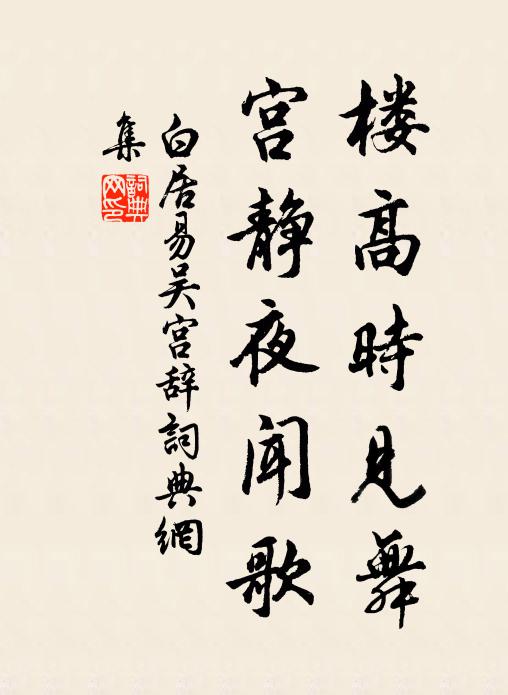 楼高時見舞
宫静夜闻歌
白居易吴宫辞詞典網
集
詞典网印